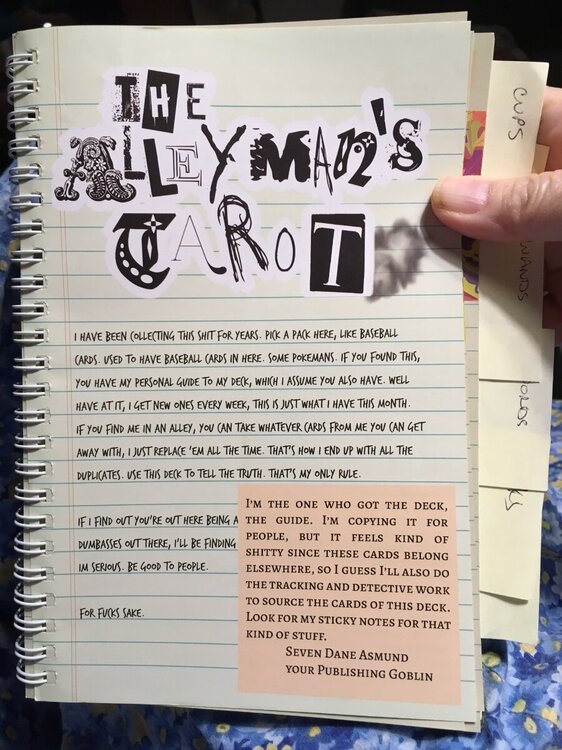 THE
ALLEYMAN'S
TAROT
CUPS
WANDS
I HAVE BEEN COLLECTING THIS SHIT FOR YEARS. PICK A PACK HERE, LIKE BASEBALL
CARDS. USED TO HAVE BASEBALL CARDS IN HERE. SOME POKEMANS. IF YOU FOUND THIS,
YOU HAVE MY PERSONAL GUIDE TO MY DECK, WHICH I ASSUME YOU ALSO HAVE. WELL
HAVE AT IT, I GET NEW ONES EVERY WEEK, THIS IS JUST WHAT I HAVE THIS MONTH.
IF YOU FIND ME IN AN ALLEY, YOU CAN TAKE WHATEVER CARDS FROM ME YOU CAN GET
AWAY WITH, I JUST REPLACE 'EM ALL THE TIME. THAT'S HOW I END UP WITH ALL THE
DUPLICATES. USE THIS DECK TO TELL THE TRUTH. THAT'S MY ONLY RULE.
IF I FIND OUT YOU'RE OUT HERE BEING A
DUMBASSES OUT THERE, I'LL BE FINDING
IM SERIOUS. BE GOOD TO PEOPLE.
FOR FUCKS SAKE.
I'M THE ONE WHO GOT THE DECK,
THE GUIDE. I'M COPYING IT FOR
PEOPLE, BUT IT FEELS KIND OF
SHITTY SINCE THESE CARDS BELONG
ELSEWHERE, SO I GUESS I'LL ALSO DO
THE TRACKING AND DETECTIVE WORK
TO SOURCE THE CARDS OF THIS DECK.
LOOK FOR MY STICKY NOTES FOR THAT
KIND OF STUFF.
SEVEN DANE ASMUND
YOUR PUBLISHING GOBLIN